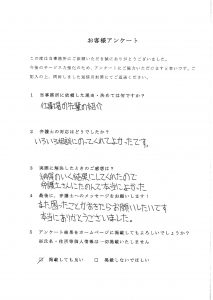 お客様アンケート
この度は当事務所にご依頼いただき誠にありがとうございました。
今後のサービス向上のため、アンケートにご協力いただけますと幸いです。ご
記入の上、同封しました返信用封筒にてご返送ください。
1 当事務所に依頼した理由・決めては何ですか?
仕事場の先輩の紹介
2 弁護士の対応はどうでしたか?
いろいろ相談にのってくれてよかったです。
3 実際に解決したときのご感想は?
納得のいく結果にしてくれたので
弁護士さんにたのんで本当によかった
4 最後に、弁護士へのメッセージをお願いします!
また困ったことがおきたらお願いしたいです
本当にありがとうございました。
5 アンケート結果をホームページに掲載してもよろしいでしょうか?
※氏名・住所等個人情報は一切掲載いたしません
掲載しても良い □ 掲載しないでほしい